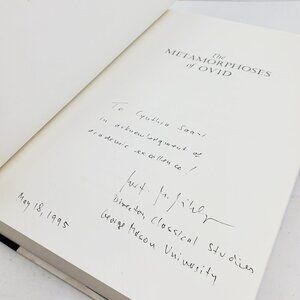 The
METAMORPHOSES
of OVID
To Cynthia
in acknowledgment of
academic excellence!
Director, Classical Studies
George Mason University
May 18, 1995